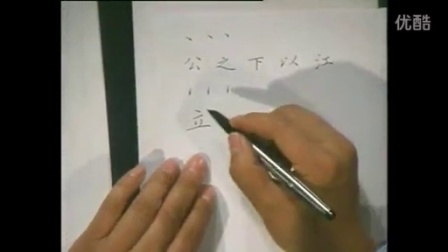 优酷
、、、
公之下以江
立